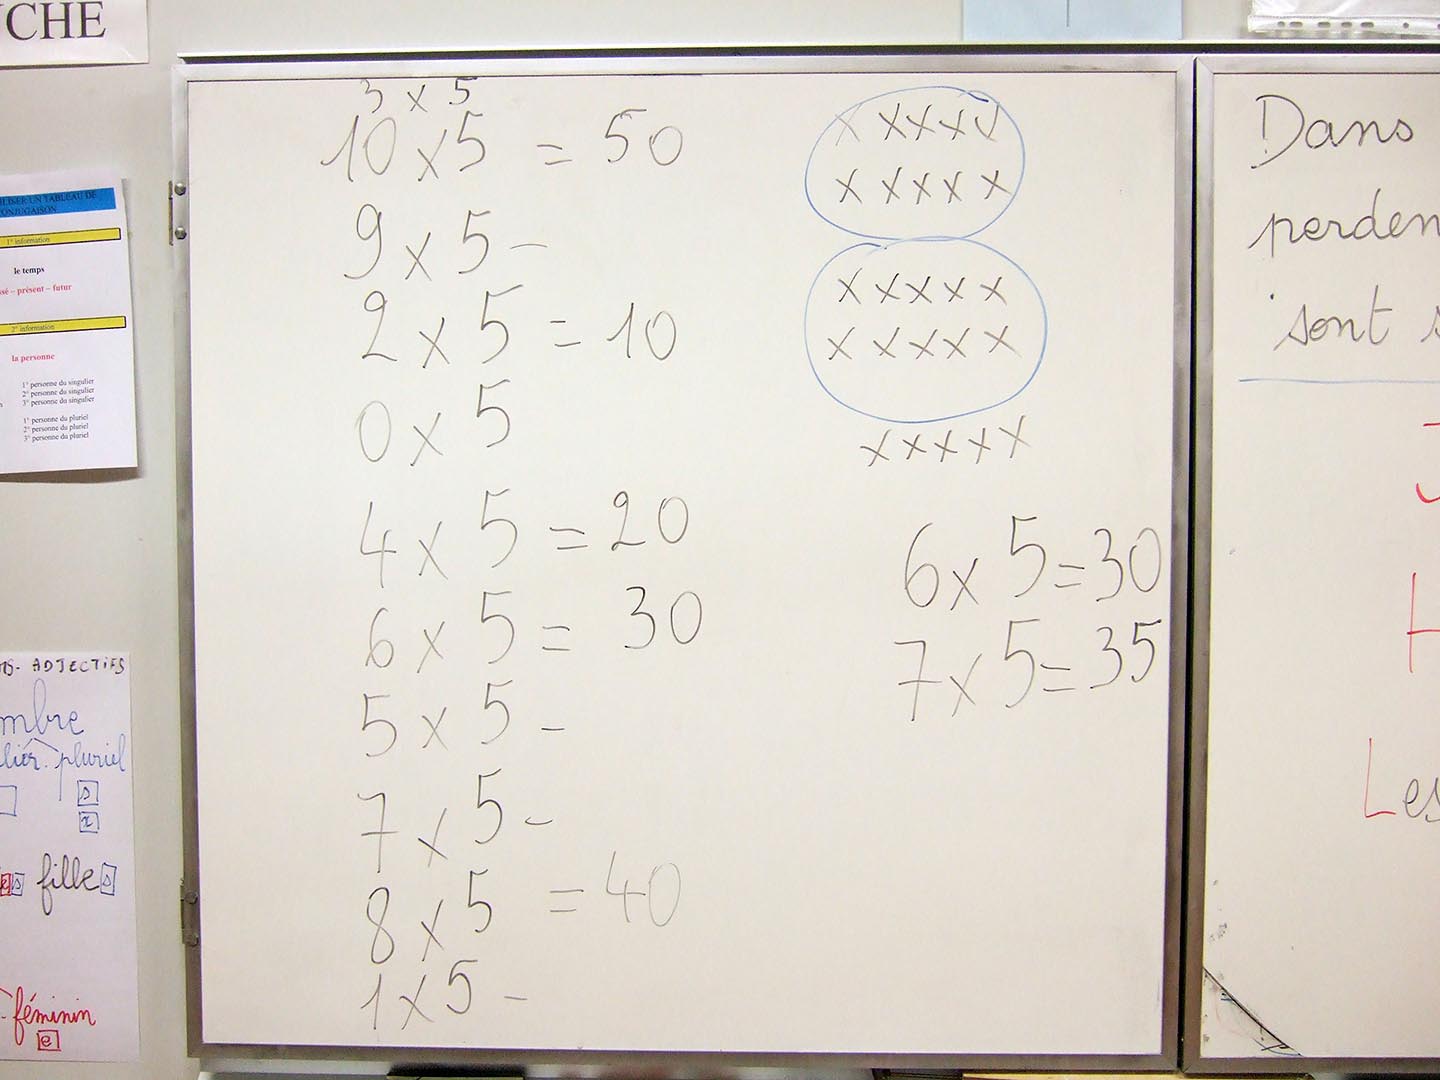 UCHE
LISER UN TABLEAU DE
CONJUGAISON
1° information
le temps
ssé – présent – futur
2° information
la personne
1° personne du singulier
2° personne du singulier
3° personne du singulier
1° personne du pluriel
2° personne du pluriel
3° personne du pluriel
MS- ADJECTIFS
mbre
lier. pluriel
s
x
e s fille s
féminin
e
3 x 5
10 x 5 = 50
9 x 5 -
2 x 5 = 10
0 x 5
4 x 5 = 20
6 x 5 = 30
5 x 5 -
7 x 5 -
8 x 5 = 40
1 x 5 -
x x x x x
x x x x x
x x x x x
x x x x x
x x x x x
6 x 5 = 30
7 x 5 = 35
Dans
perden
sont s
J
H
Les